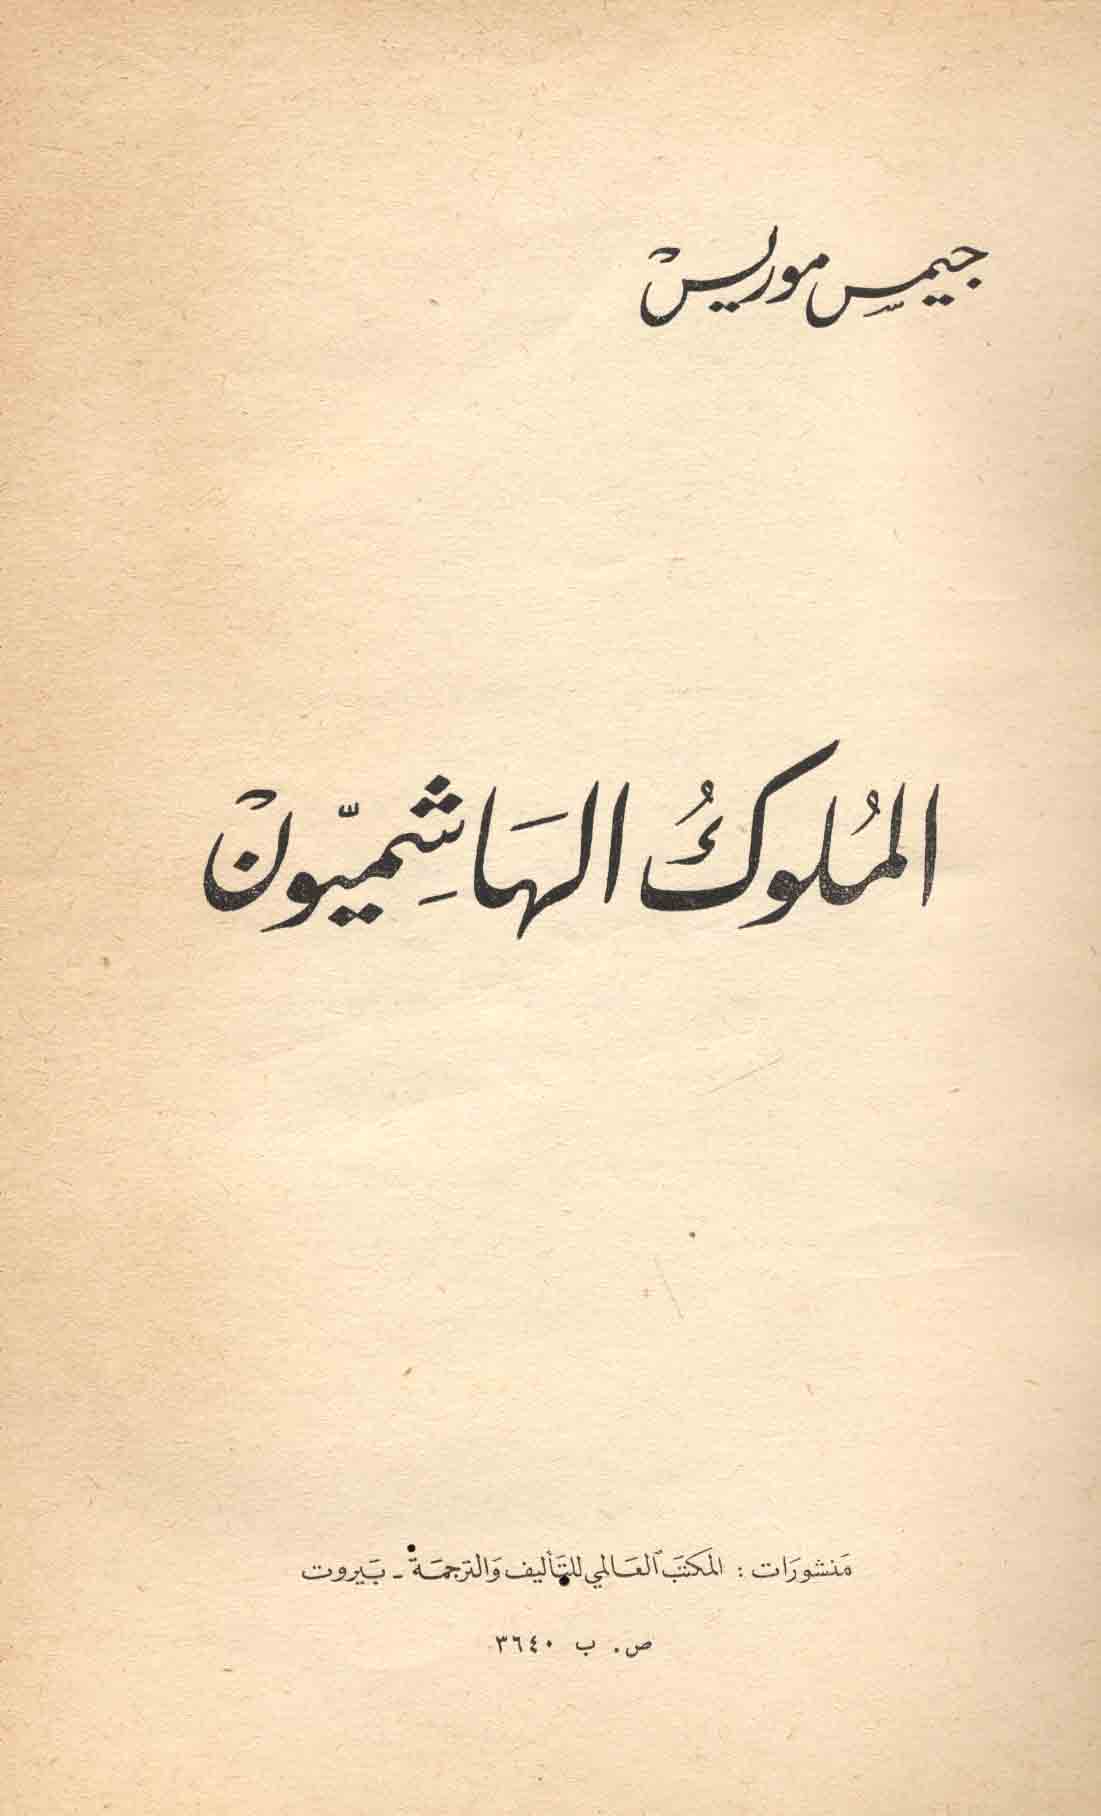 جيمس موريس
الملُوكُ الهَاشِميّون
مَنشورَات : المكتَب العَالمي للتَأليف وَالترجمَة - بَيروت
ص. ب ٣٦٤٠